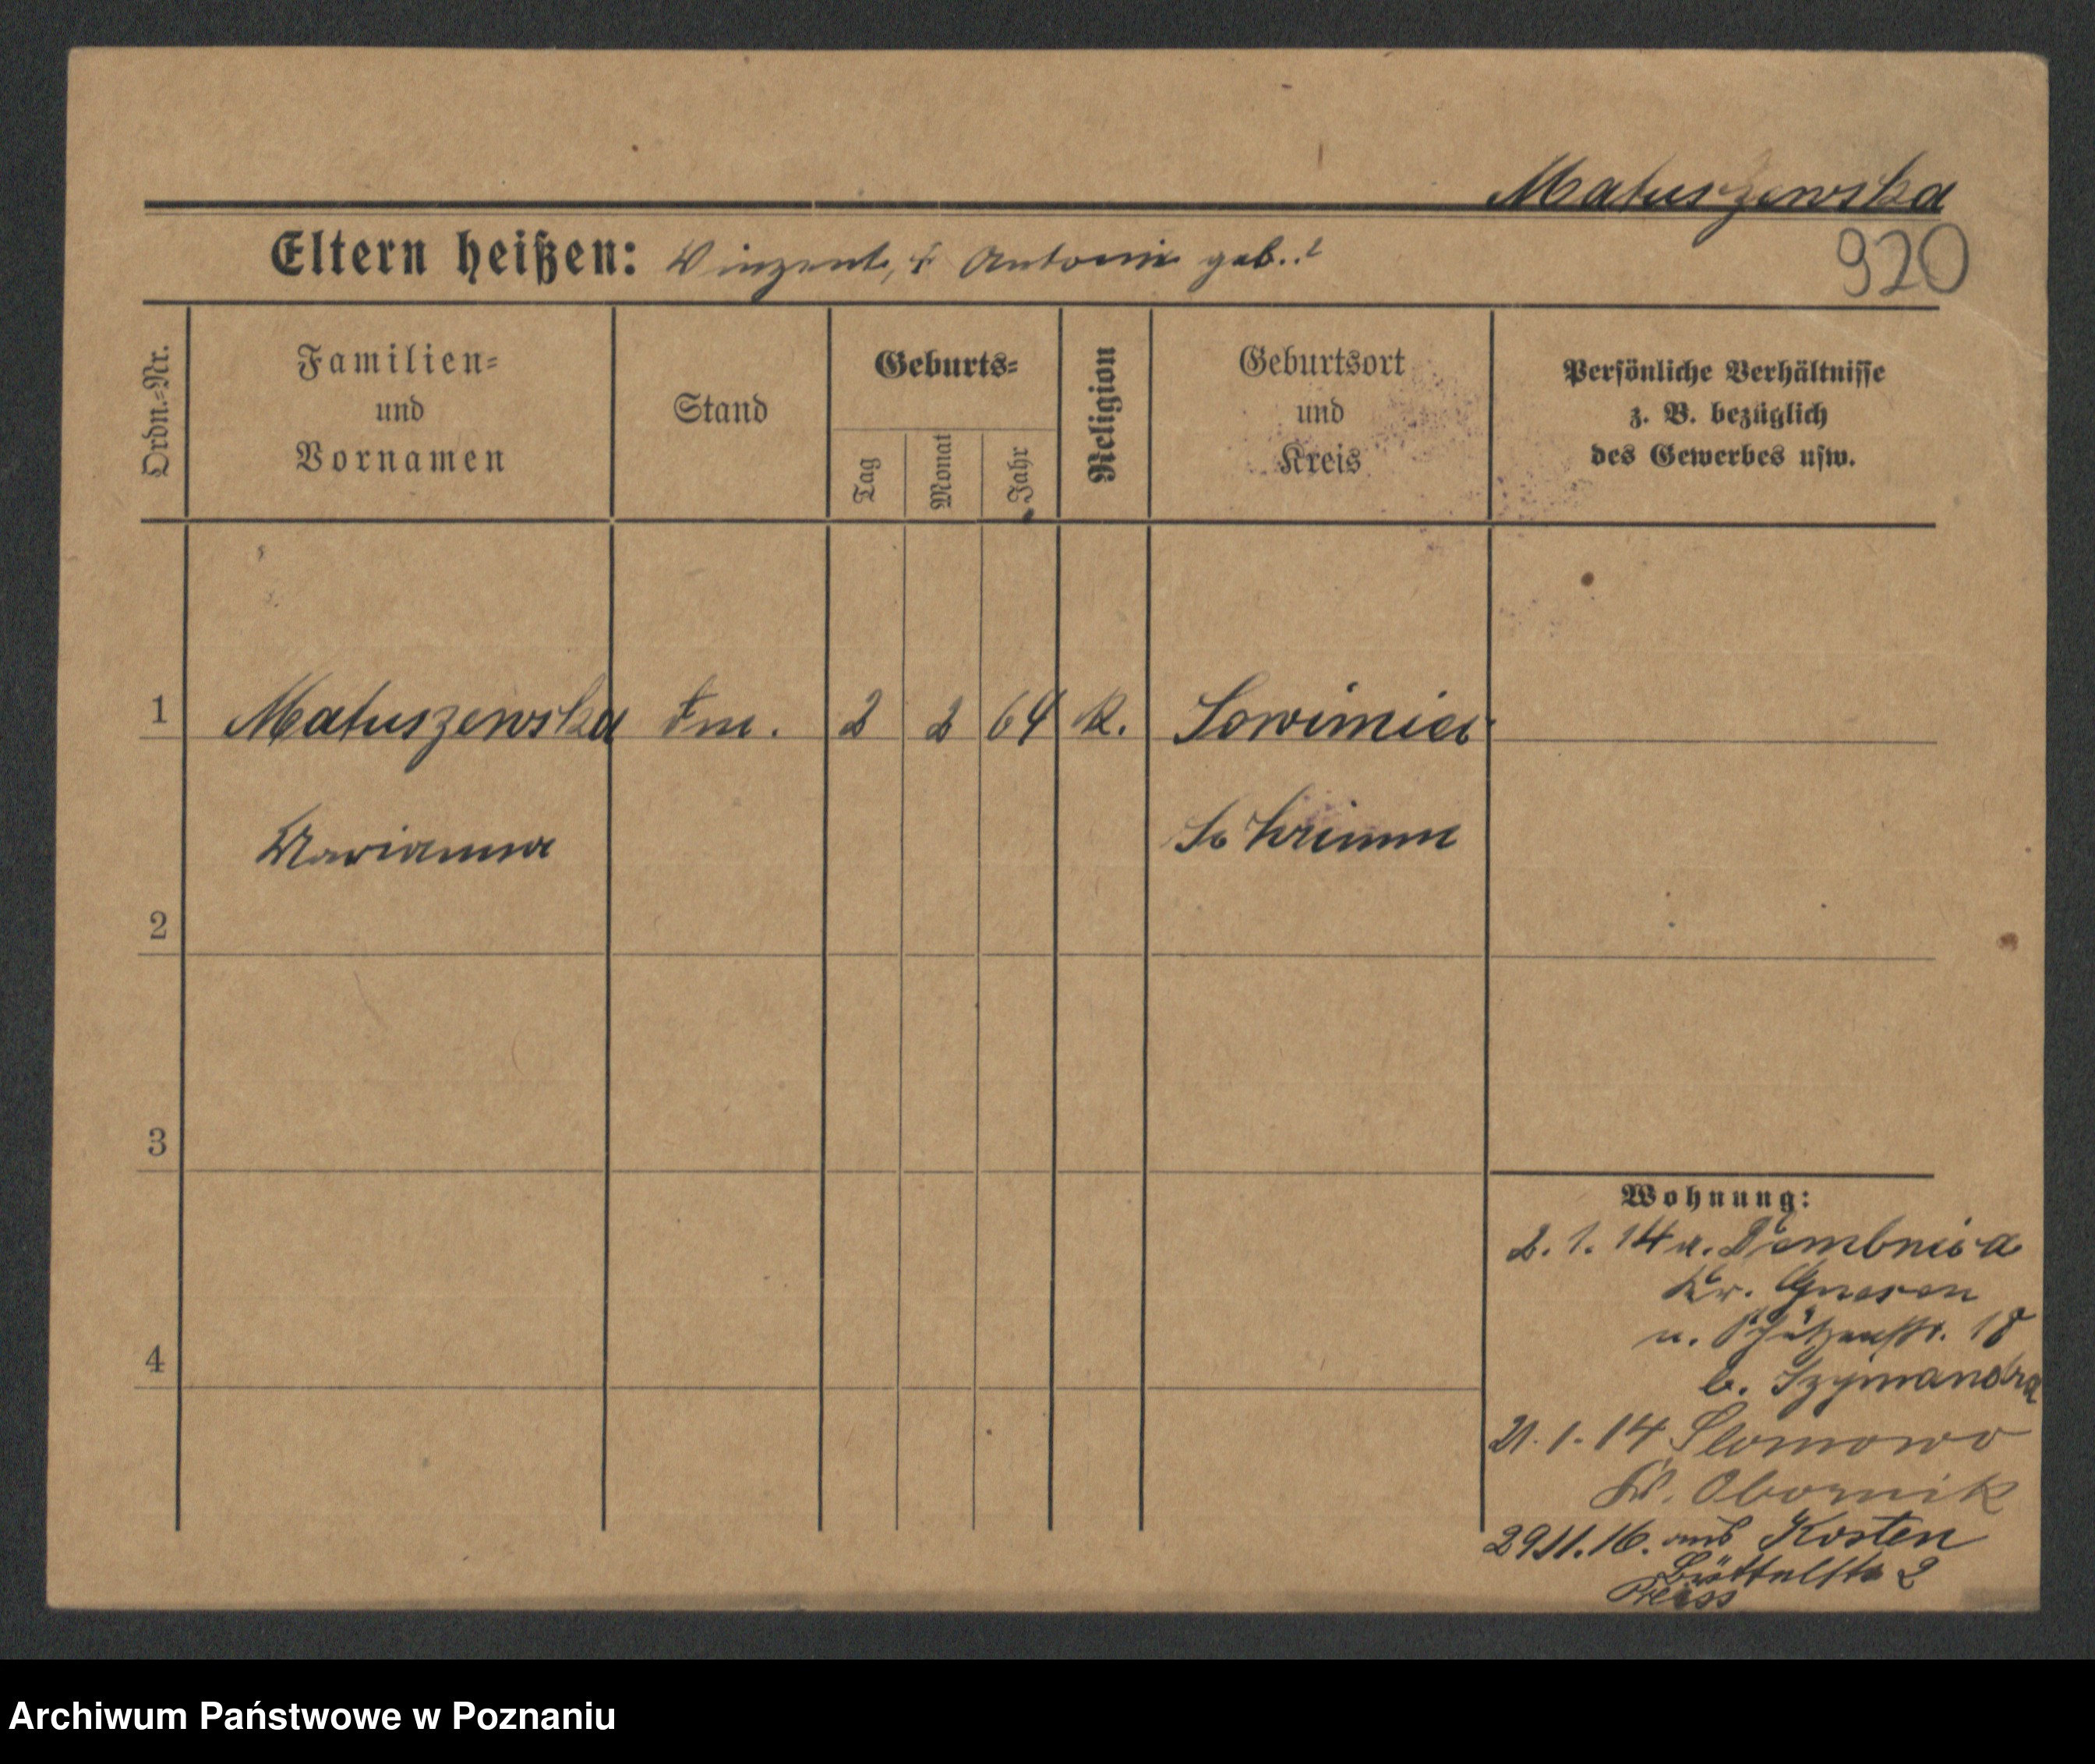 Matuszewska
Eltern heißen: Vinzent, u. Antonie geb. ?
920
Ordn.=Nr.
Familien=
und
Vornamen
Stand
Geburts=
Tag
Monat
Jahr
Religion
Geburtsort
und
Kreis
Persönliche Verhältnisse
z. B. bezüglich
des Gewerbes usw.
1 Matuszewska 2 2 64 k. Sowiniec
Marianna Schrimm
2
3
4
Wohnung:
2. 1. 14 a. Dembnica
Kr. Gnesen
n. Schützenstr. 18
b. Szymandra
21. 1. 14 Slomowo
Kr. Obornik
29 11. 16. aus Kosten
2
Preiss
Archiwum Państwowe w Poznaniu